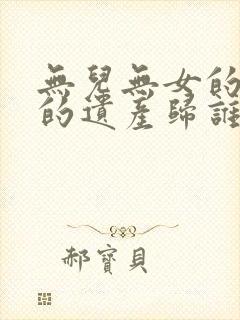 無兒無女的
的遺產歸誰
郝寶貝